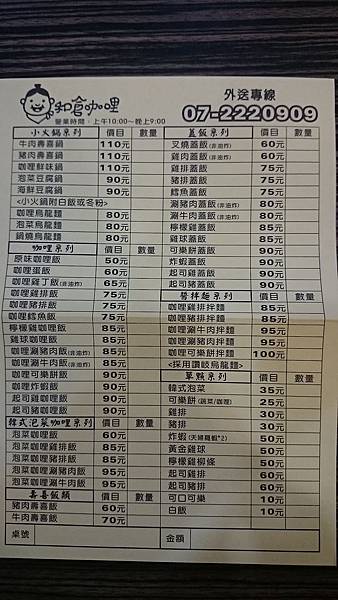 和倉咖哩
營業時間：上午10:00~晚上9:00
外送專線
07-2220909
小火鍋系列 價目 數量
牛肉壽喜鍋 110元
豬肉壽喜鍋 110元
咖哩鮮味鍋 110元
泡菜豆腐鍋 90元
海鮮豆腐鍋 90元
<小火鍋附白飯或冬粉>
咖哩烏龍麵 80元
泡菜烏龍麵 80元
鍋燒烏龍麵 80元
咖哩系列 價目 數量
原味咖哩飯 50元
咖哩蛋飯 60元
咖哩雞丁飯(非油炸) 65元
咖哩雞排飯 75元
咖哩豬排飯 75元
咖哩鱈魚飯 75元
檸檬雞咖哩飯 85元
雞球咖哩飯 80元
咖哩涮豬肉飯(非油炸) 80元
咖哩涮牛肉飯(非油炸) 80元
咖哩可樂餅飯 90元
咖哩炸蝦飯 90元
起司雞咖哩飯 90元
起司豬咖哩飯 90元
韓式泡菜咖哩系列 價目 數量
泡菜咖哩飯 60元
泡菜咖哩雞排飯 85元
泡菜咖哩豬排飯 85元
泡菜咖哩涮豬肉飯 95元
泡菜咖哩涮牛肉飯 95元
壽喜飯類 價目 數量
豬肉壽喜飯 60元
牛肉壽喜飯 70元
桌號
蓋飯系列 價目 數量
叉燒蓋飯(非油炸) 60元
雞肉蓋飯(非油炸) 60元
雞排蓋飯 75元
豬排蓋飯 75元
鱈魚蓋飯 75元
涮豬肉蓋飯(非油炸) 80元
涮牛肉蓋飯(非油炸) 80元
檸檬雞蓋飯 85元
雞球蓋飯 85元
可樂餅蓋飯 90元
炸蝦蓋飯 90元
起司雞蓋飯 90元
起司豬蓋飯 90元
醬拌麵系列 價目 數量
咖哩雞排拌麵 85元
咖哩豬排拌麵 85元
咖哩涮牛肉拌麵 95元
咖哩涮豬肉拌麵 95元
咖哩可樂餅拌麵 100元
<採用讚岐烏龍麵>
單點系列 價目 數量
韓式泡菜 35元
可樂餅(蔬菜/咖哩) 25元
雞排 30元
豬排 30元
炸蝦(天婦羅蝦*2) 50元
黃金雞球 50元
檸檬雞柳條 50元
起司雞排 60元
起司豬排 60元
可口可樂 10元
白飯 10元
金額